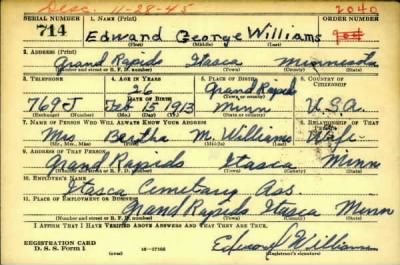 Desc. 11-28-45
2040
SERIAL NUMBER 1. NAME (Print) ORDER NUMBER
714 Edward George Williams
(First) (Middle) (Last)
2. ADDRESS (Print)
Grand Rapids Itasca Minnesota
(Number and street or R. F. D. number) (Town) (County) (State)
3. TELEPHONE 4. AGE IN YEARS 5. PLACE OF BIRTH 6. COUNTRY OF CITIZENSHIP
26 Grand Rapids
DATE OF BIRTH (Town or county)
769J Feb 15 1913 Minn U.S.A.
(Exchange) (Number) (Mo.) (Day) (Yr.) (State or country)
7. NAME OF PERSON WHO WILL ALWAYS KNOW YOUR ADDRESS 8. RELATIONSHIP OF THAT PERSON
Mrs Bertha M. Williams Wife
(Mr., Mrs., Miss) (First) (Middle) (Last)
9. ADDRESS OF THAT PERSON
Grand Rapids Itasca Minn
(Number and street or R. F. D. number) (Town) (County) (State)
10. EMPLOYER'S NAME
Itasca Cemetary Ass.
11. PLACE OF EMPLOYMENT OR BUSINESS
Grand Rapids Itasca Minn
(Number and street or R. F. D. number) (Town) (County) (State)
I AFFIRM THAT I HAVE VERIFIED ABOVE ANSWERS AND THAT THEY ARE TRUE.
REGISTRATION CARD
D. S. S. Form 1 16-17105 Edward Williams
(Registrant's signature)